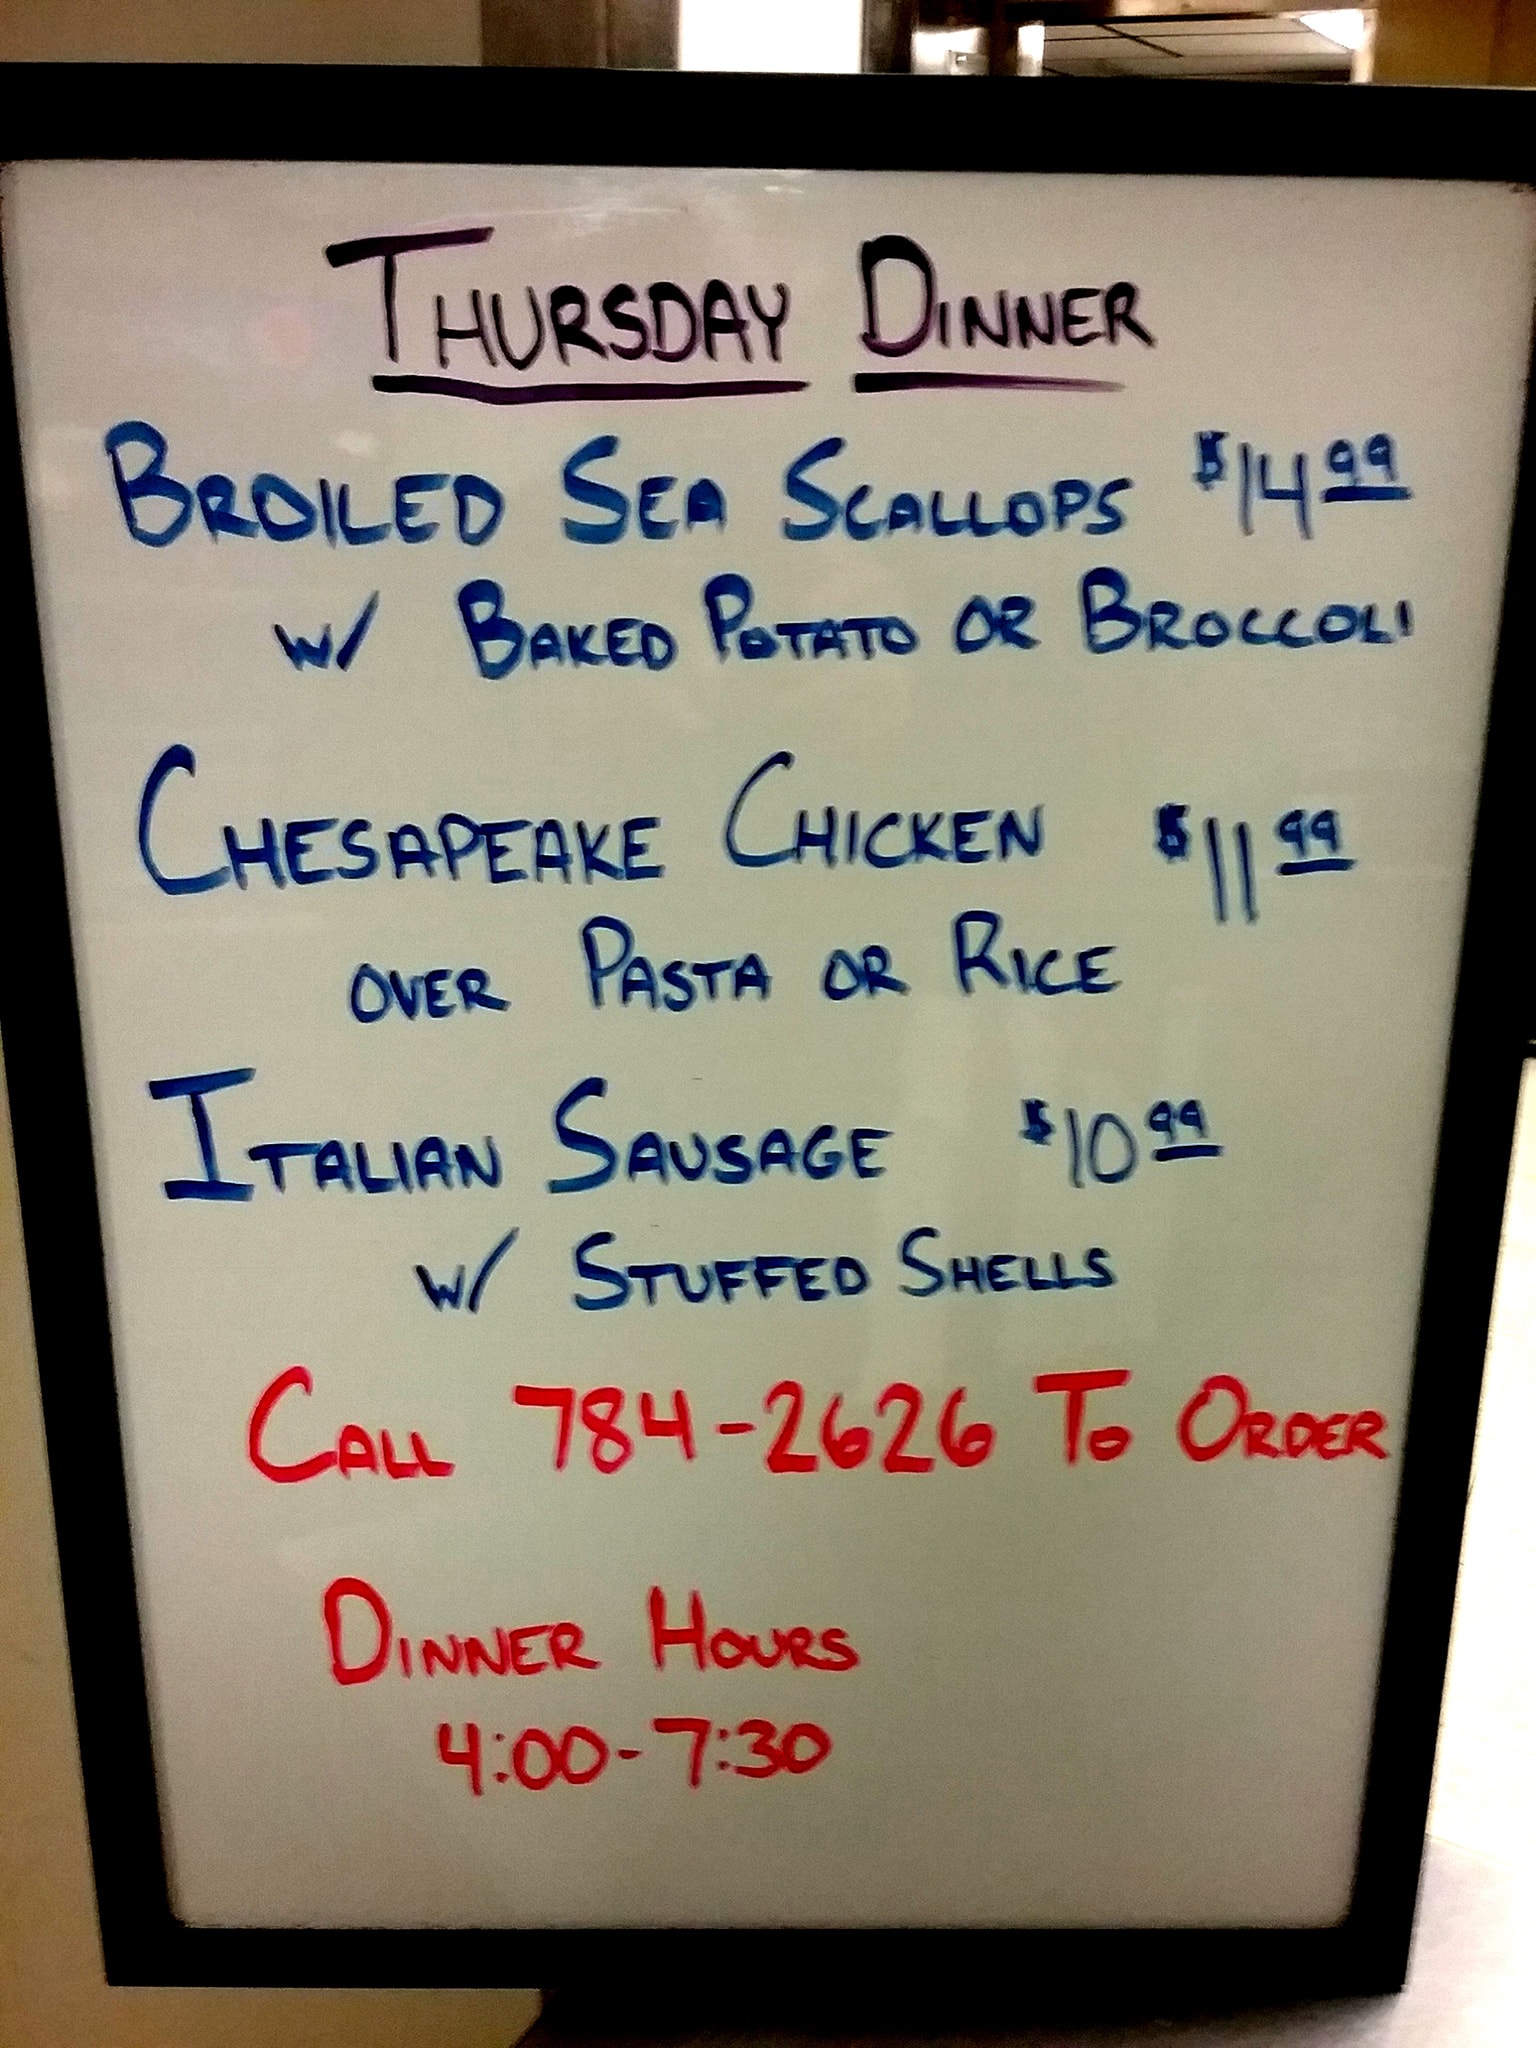 THURSDAY DINNER
BROILED SEA SCALLOPS $14.99
w/ BAKED POTATO OR BROCCOLI
CHESAPEAKE CHICKEN $11.99
OVER PASTA OR RICE
ITALIAN SAUSAGE $10.99
w/ STUFFED SHELLS
CALL 784-2626 TO ORDER
DINNER HOURS
4:00-7:30